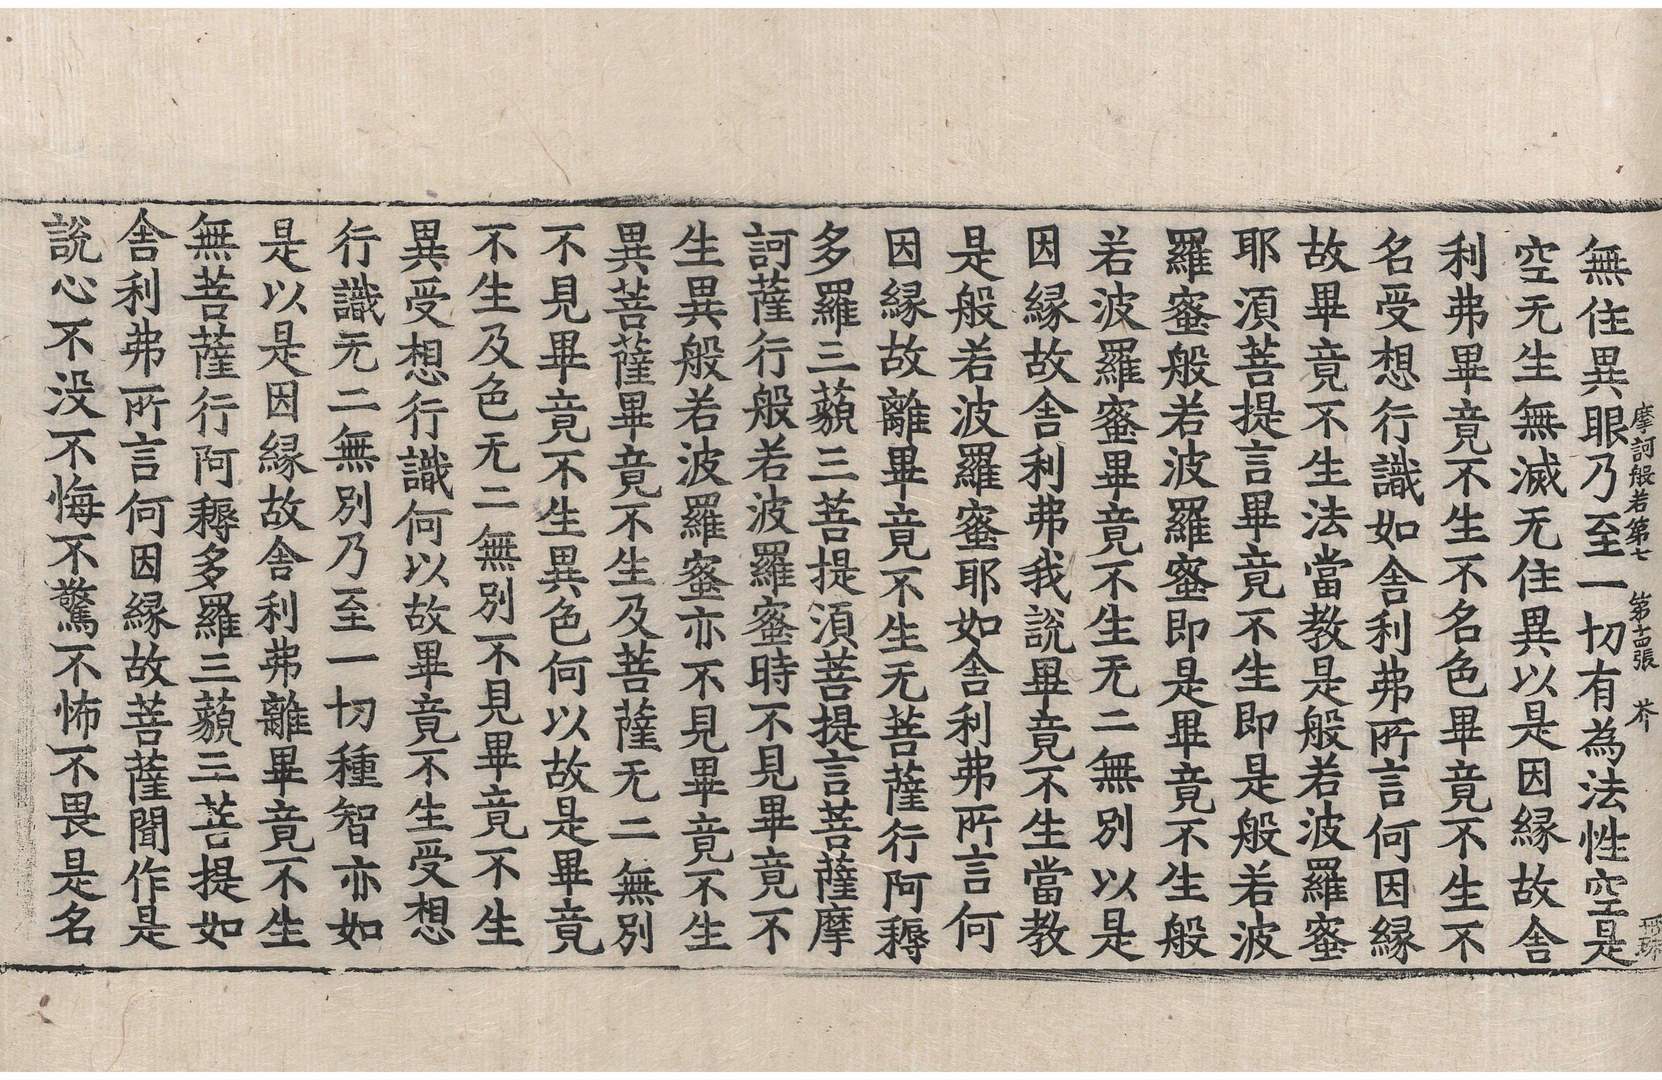 摩訶般若第七 第十四張 芥
無住異眼乃至一切有為法性空是
空无生無滅无住異以是因縁故舍
利弗畢竟不生不名色畢竟不生不
名受想行識如舍利弗所言何因縁
故畢竟不生法當教是般若波羅蜜
耶湏菩提言畢竟不生即是般若波
羅蜜般若波羅蜜即是畢竟不生般
若波羅蜜畢竟不生无二無別以是
因縁故舍利弗我說畢竟不生當教
是般若波羅蜜耶如舍利弗所言何
因縁故離畢竟不生无菩薩行阿耨
多羅三藐三菩提湏菩提言菩薩摩
訶薩行般若波羅蜜時不見畢竟不
生異般若波羅蜜亦不見畢竟不生
異菩薩畢竟不生及菩薩无二無別
不見畢竟不生異色何以故是畢竟
不生及色无二無別不見畢竟不生
異受想行識何以故畢竟不生受想
行識无二無別乃至一切種智亦如
是以是因縁故舍利弗離畢竟不生
無菩薩行阿耨多羅三藐三菩提如
舍利弗所言何因縁故菩薩聞作是
說心不没不悔不驚不怖不畏是名